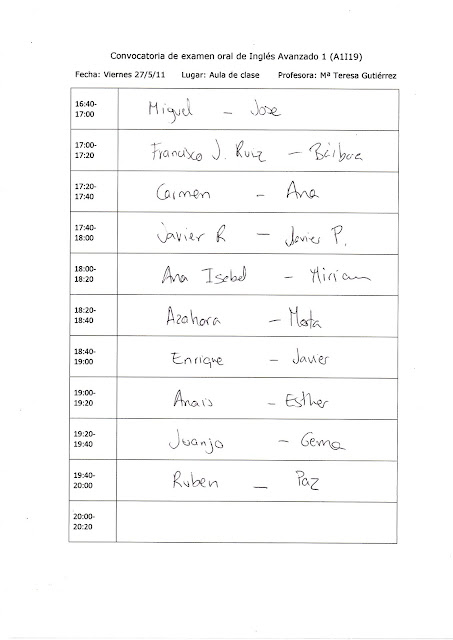 Convocatoria de examen oral de Inglés Avanzado 1 (A1I19)
Fecha: Viernes 27/5/11 Lugar: Aula de clase Profesora: Mª Teresa Gutiérrez
16:40-
17:00 Miguel – Jose
17:00-
17:20 Francisco J. Ruiz – Bárbara
17:20-
17:40 Carmen – Ana
17:40-
18:00 Javier R – Javier P.
18:00-
18:20 Ana Isabel – Miriam
18:20-
18:40 Azahara – Marta
18:40-
19:00 Enrique – Javier
19:00-
19:20 Anais – Esther
19:20-
19:40 Juanjo – Gema
19:40-
20:00 Ruben – Paz
20:00-
20:20